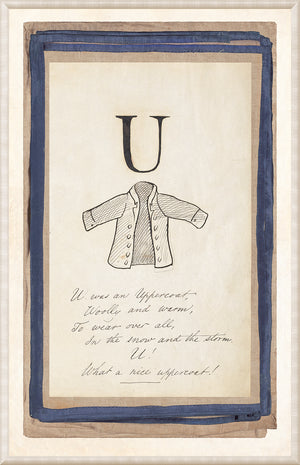 U
U was an Uppercoat,
Woolly and warm,
To wear over all,
In the snow and the storm.
U!
What a nice uppercoat!